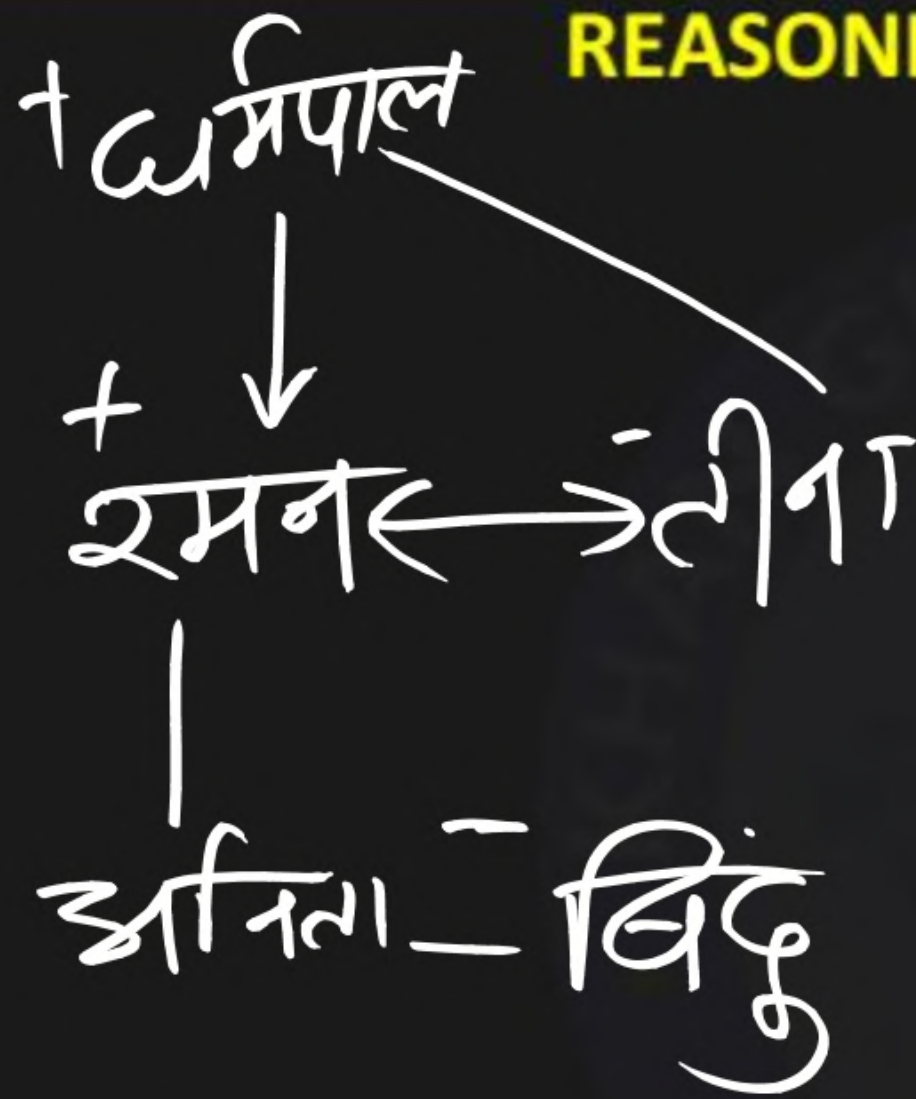 REASONI
+ धर्मपाल
+
रमन - तीना
अनिता - बिंदु